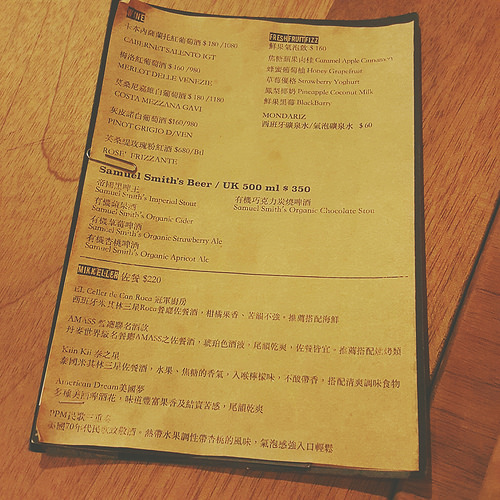 WINE
卡本內薩蘭托紅葡萄酒 $180 /1080
CABERNET SALENTO IGT
梅洛紅葡萄酒 $160 /980
MERLOT DELLE VENEZIE
莫桑尼嘉維白葡萄酒 $180 /1180
COSTA MEZZANA GAVI
灰皮諾白葡萄酒 $160/980
PINOT GRIGIO D/VEN
芙桑緹玫瑰粉紅酒 $680/Btl
ROSE' FRIZZANTE
FRESHFRUITFIZZ
鮮果氣泡飲 $160
焦糖蘋果肉桂 Caramel Apple Cinnamon
蜂蜜葡萄柚 Honey Grapefruit
草莓優格 Strawberry Yoghurt
鳳梨椰奶 Pineapple Coconut Milk
鮮果黑莓 BlackBarry
MONDARIZ
西班牙礦泉水/氣泡礦泉水 $ 60
Samuel Smith's Beer / UK 500 ml $ 350
帝國黑啤酒
Samuel Smith's Imperial Stout
有機蘋果酒
Samuel Smith's Organic Cider
有機草莓啤酒
Samuel Smith's Organic Strawberry Ale
有機杏桃啤酒
Samuel Smith's Organic Apricot Ale
有機巧克力炭燒啤酒
Samuel Smith's Organic Chocolate Stout
MIKKELLER 佐餐 $220
EL Celler de Can Roca 冠軍廚房
西班牙米其林三星Roca餐廳佐餐酒，柑橘果香、苦韻不強。推薦搭配海鮮
AMASS 餐廳聯名酒款
丹麥世界級名餐廳AMASS之佐餐酒，琥珀色酒液，尾韻乾爽，佐餐皆宜。推薦搭配燒烤類
Kiin Kii 泰之星
泰國米其林三星佐餐酒，水果、焦糖的香氣，入喉檸檬味，不酸帶香，搭配清爽調味食物
American Dream美國夢
多種美國啤酒花，味道豐富果香及結實苦感，尾韻乾爽
PPM民歌三重奏
美國70年代民歌致敬酒。熱帶水果調性帶杏桃的風味，氣泡感強入口輕鬆